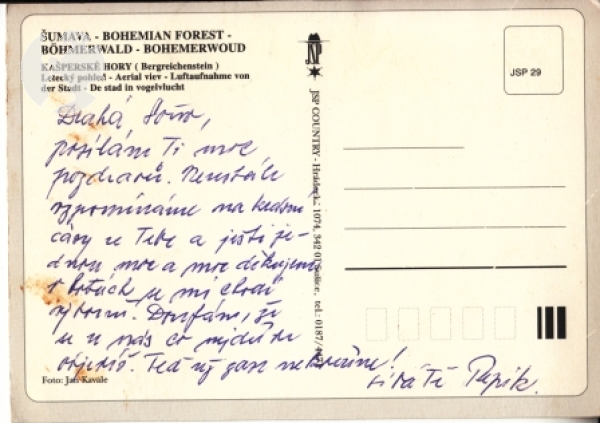 ŠUMAVA - BOHEMIAN FOREST -
BÖHMERWALD - BOHEMERWOUD
KAŠPERSKÉ HORY ( Bergreichenstein )
Letecký pohled - Aerial viev - Luftaufnahme von
der Stadt - De stad in vogelvlucht
Drahá
posílám Ti moc
pozdravů. Neustále
vzpomínáme na krásné
časy u Tebe a ještě je-
dnou moc a moc děkujeme
v botách se mi chodí
výborně. Doufám, že
se u nás co nejdříve
objevíš. Teď už zase
líbá Tě Pepík.
Foto: Jan Kavale
JSP
JSP COUNTRY - Hrádecká 1074, 342 01 Sušice, tel.: 0187/
JSP 29